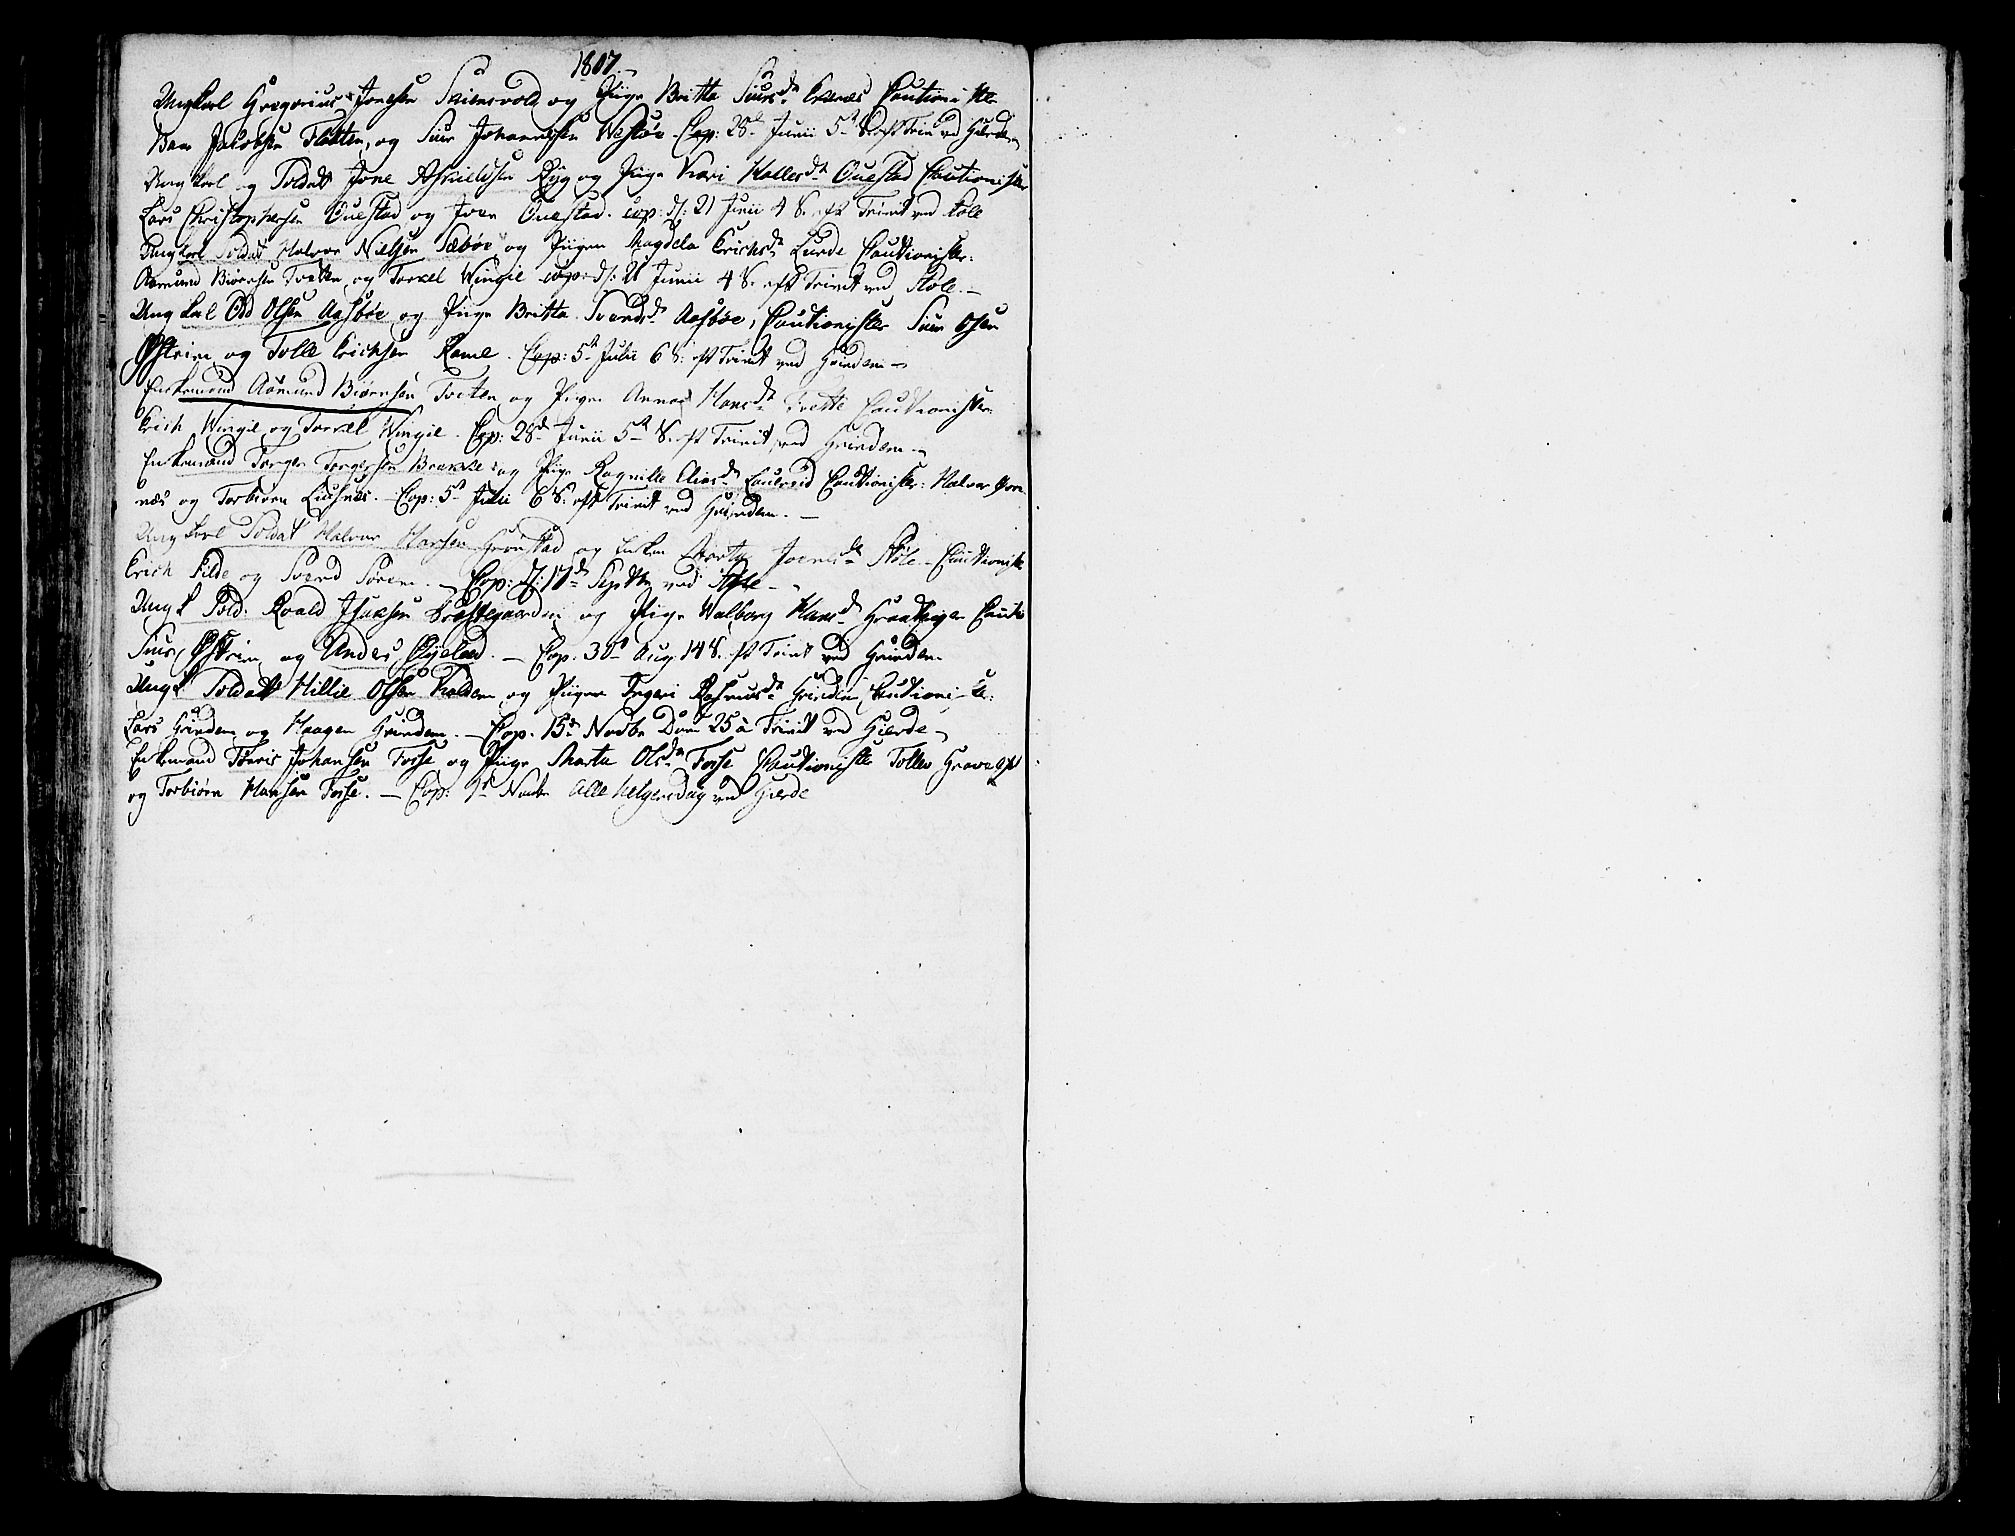 1807
Ungkarl Gregorius Jonesen Skiensvold og Pige Britta Siursdr Ekenes Cautioniste
Jacobsen Fletten, og Siur Johannesen Westøe Cop: 28d Junii 5t S. eft Trin ved
Ungkarl og Soldat Jone Askieldsen Ryg og Pige Kari Hallesdr Ouestad Cautionister
Lars Christophersen Ouestad og Joen Ouestad. cop: d: 21 Junii 4 S. eft Trinit ved Støle
Ungkarl Soldat Halvor Nielsen Sæbøe og Pigen Magdela Erichsdr Lunde Cautionister:
Aamund Biørnsen Tveten og Torkel Wingie cop: d: 21 Junii 4 S. eft Trinit ved Støle. –
Ungkarl Odd Olsen Aasbøe og Pige Britta Svendsdr Aasbøe, Cautionister Siur Osen
Østrim og Tolle Erichsen Rame. Cop: 5t Julii 6 S: eft Trinit ved Grindem –
Enkemand Aamund Biørnsen Tveten og Pigen Anna Hansdr Cautionister:
Erich Wingie og Torkel Wingie. Cop: 28d Junii 5t S. eft Trinit ved Grindem –
Enkemand Torger Torgersen Brække og Pige Ragnille Eliasdr Cautionister: Halvor
næs og Torbiørn Liusnes. – Cop: 5t Julii 6 S. eft Trinit ved Grindem. –
Ungkarl Soldat Halvor Hansen Grønstad og Enken Joensdr Støle – Cautioniste
Erich Silde og Svend Sørem. – Cop: d: 17de Septbr ved Støle –
Ung k Sold: Roald Isaksen og Pige Walborg Hansdr Cautio
Siur Østrim og Anders – Cop. 30t Aug. 14 S. eft Trinit ved Grindem.
Ung k Soldat Hillie Olsen Halden og Pigen Ingeri Rasmusdr Grindem, Cautioniste:
Lars Grindem og Haagen Grindem. – Cop. 15de Novbr Dom 25 a Trinit ved Gierde –
Enkemand Johansen Fosse og Pige Marta Olsdr Fosse Cautionister Tollev
og Torbiørn Hansen Fosse. – Cop: 1t Novbr alle helgensdag ved Gierde